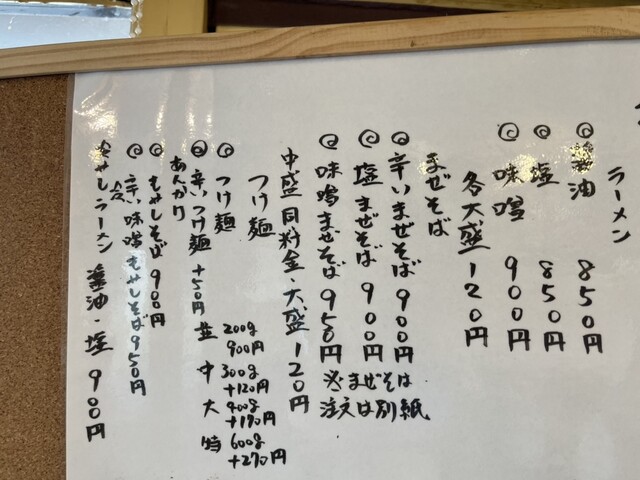 ラーメン
◎醤油 850円
◎塩 850円
◎味噌 900円
各大盛 120円
まぜそば
◎辛いまぜそば 900円
◎塩まぜそば 900円
◎味噌まぜそば 950円
※まぜそば
注文は別紙
中盛同料金・大盛120円
つけ麺
◎つけ麺
並 200g
900円
中 300g
+120円
大 400g
+170円
特 600g
+270円
◎辛いつけ麺 +50円
あんかけ
◎もやしそば 900円
◎辛い味噌もやしそば 950円
冷やしラーメン 醤油・塩 900円